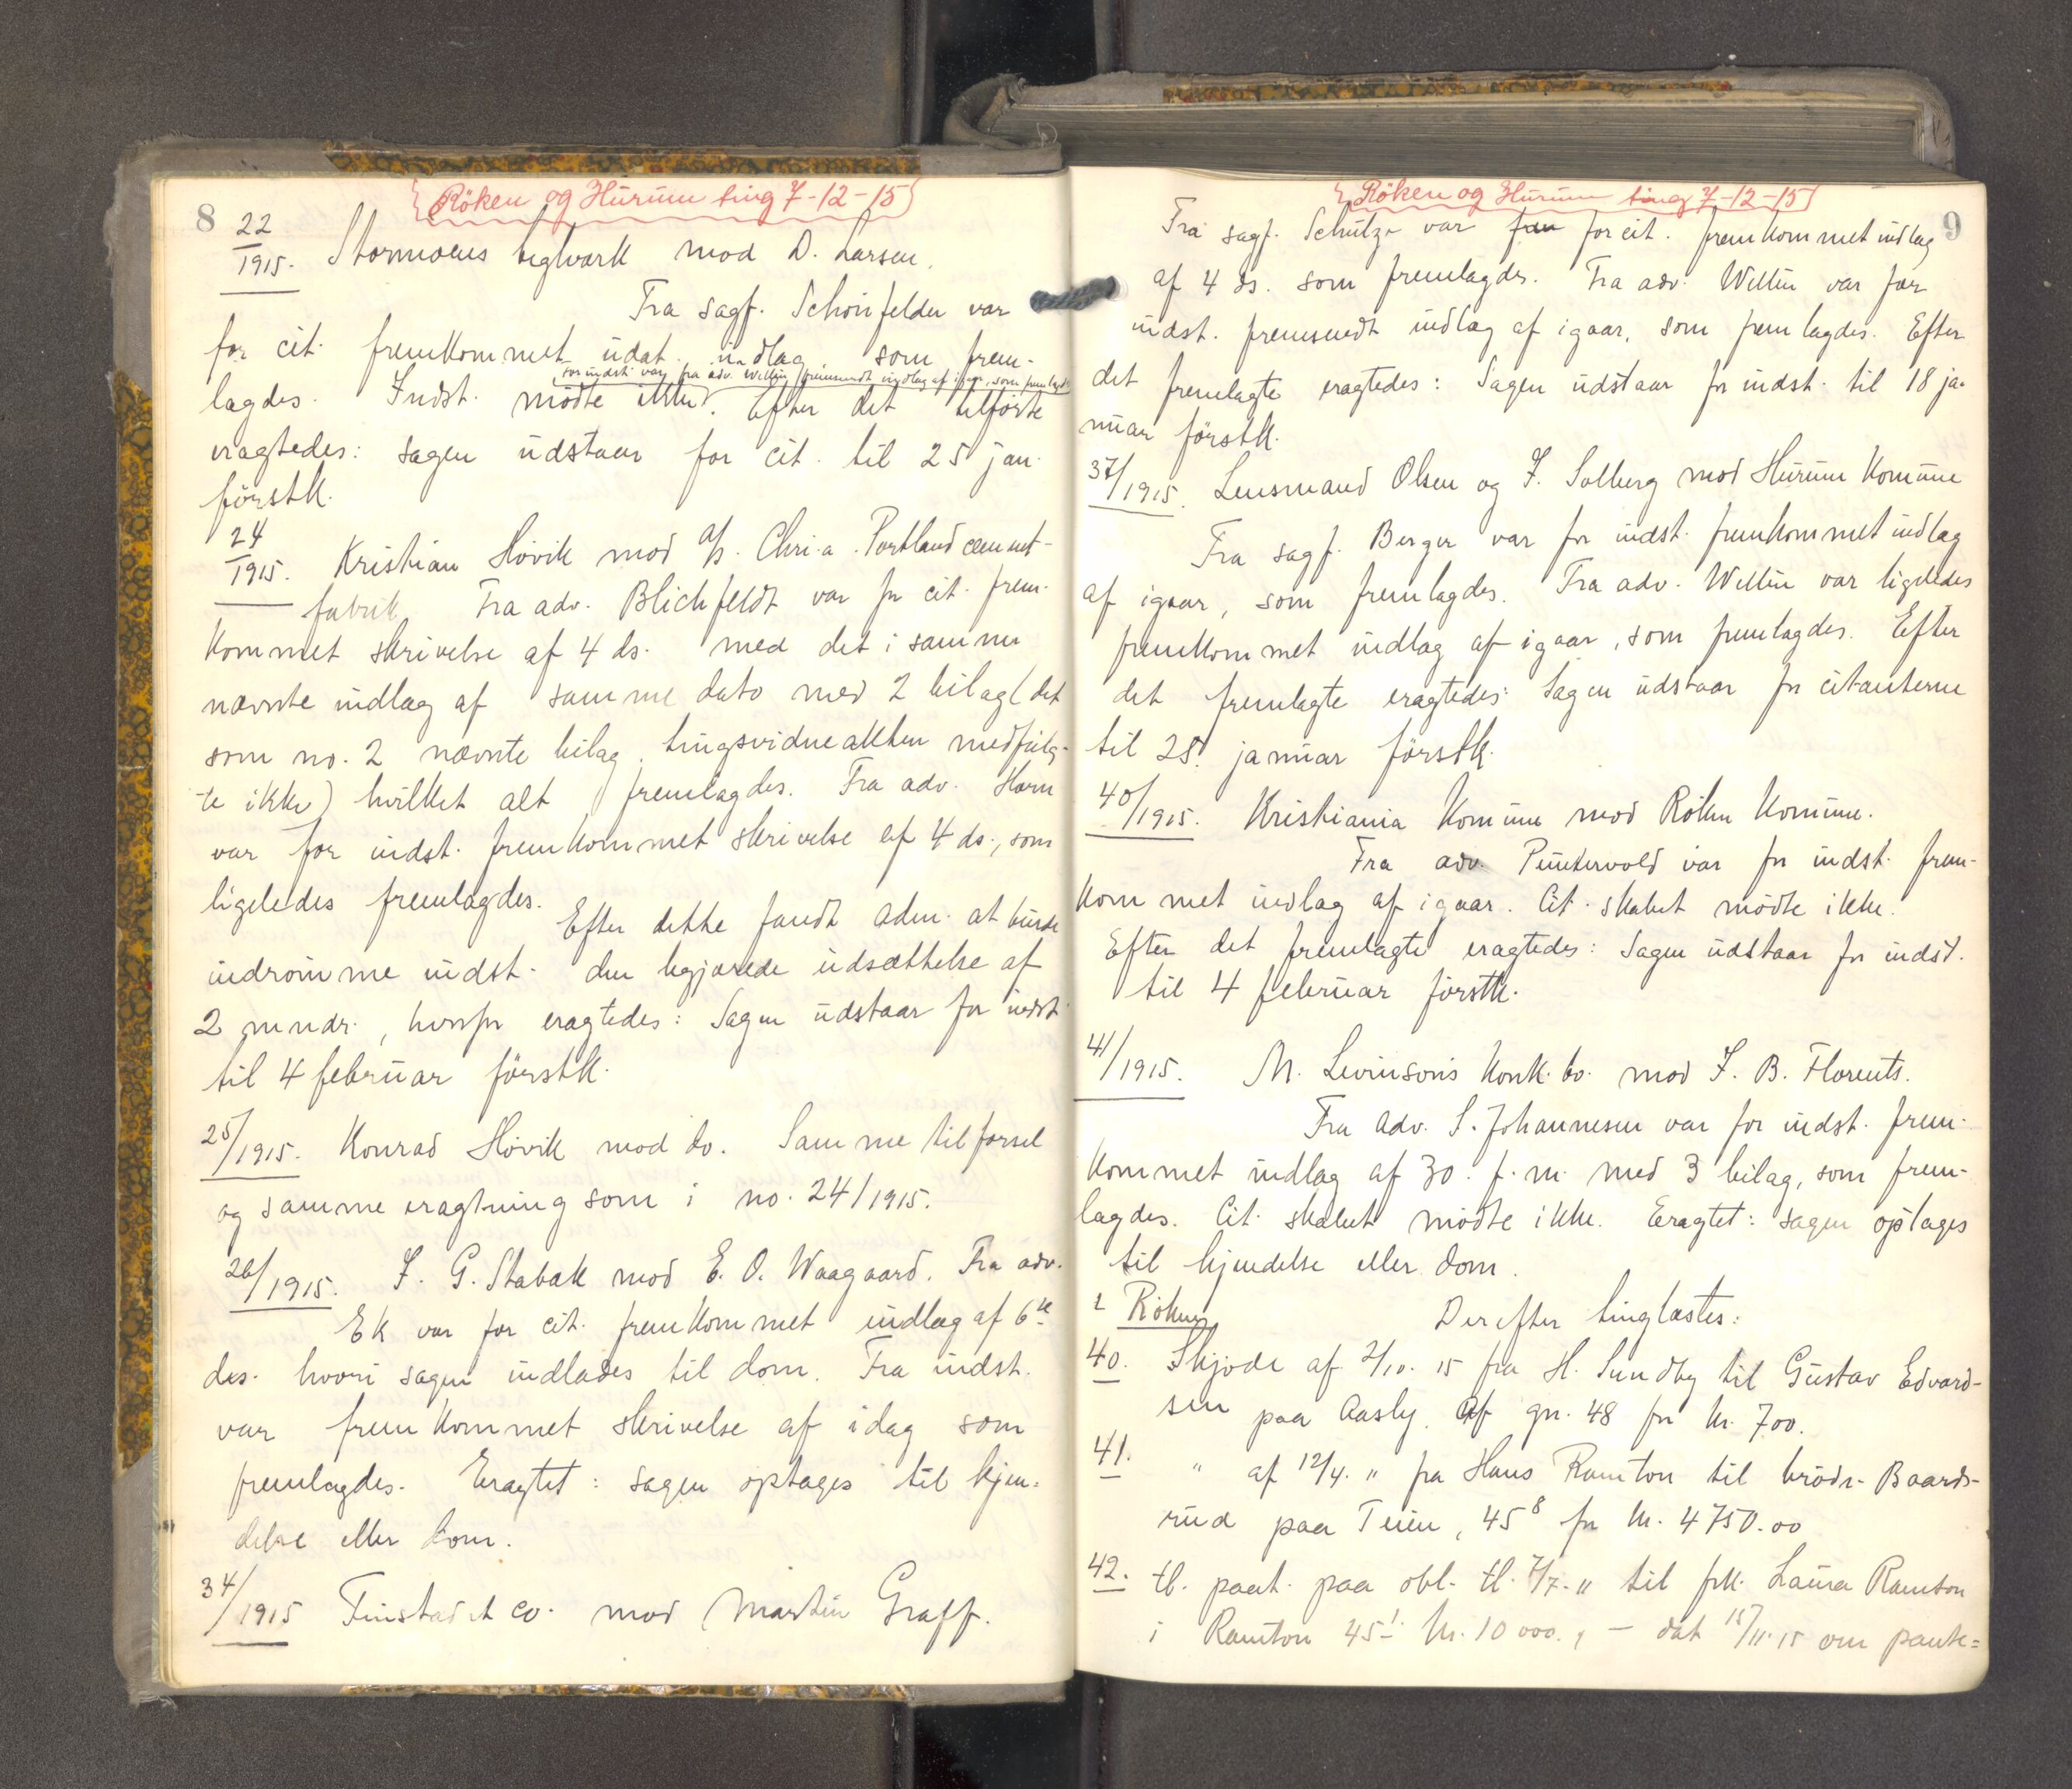 Röken og Hurum ting 7-12-15
8
22/1915. Stormoens teglverk mod D. Larsen.
Fra sagf. Schönfelder var
for cit. fremkommet udat. indlag som frem-
for indst. var fra adv. Wellin fremsendt indlag af igaar, som fremlagdes
lagdes. Indst. mödte ikke. Efter det tilförte
eragtedes: Sagen udstaar for cit. til 25 jan.
förstk.
24/1915. Kristian Hövik mod A/s. Chri.a. Portland cement-
fabrik. Fra adv. Blichfeldt var for cit. frem-
kommet skrivelse af 4 ds. med det i samme
nævnte indlæg af samme dato med 2 bilag (det
som no. 2 nævnte bilag, tingsvidneakten medfulg-
te ikke) hvilket alt fremlagdes. Fra adv. Horn
var for indst. fremkommet skrivelse af 4 ds., som
ligeledes fremlagdes.
Efter dette fandt adm. at burde
indrömme indst. den begjærede udsættelse af
2 mndr., hvorfor eragtedes: Sagen udstaar for indst.
til 4 februar förstk.
25/1915. Konrad Hövik mod do. Samme tilförsel
og samme eragtning som i no. 24/1915.
26/1915. F. G. Stabæk mod E. O. Waagaard. Fra adv.
Ek var for cit. fremkommet indlæg af 6te
ds. hvori sagen indlades til dom. Fra indst.
var fremkommet skrivelse af idag som
fremlagdes. Eragtet: sagen optages til kjen-
delse eller dom.
34/1915 Finstad et co. mod Martin Graff.
Röken og Hurum ting 7-12-15
9
Fra sagf. Schulze var for cit. fremkommet indlæg
af 4 ds. som fremlagdes. Fra adv. Wellin var for
indst. fremsendt indlæg af igaar, som fremlagdes. Efter
det fremlagte eragtedes: Sagen udstaar for indst. til 18 ja-
nuar förstk.
37/1915. Lensmand Olsen og F. Solberg mod Hurum Komune
Fra sagf. Berger var for indst. fremkommet indlæg
af igaar, som fremlagdes. Fra adv. Wellin var ligeledes
fremkommet indlæg af igaar, som fremlagdes. Efter
det fremlagte eragtedes: Sagen udstaar for citanterne
til 25. januar förstk.
40/1915. Kristiania Komune mod Röken Komune.
Fra adv. Puntervold var for indst. frem-
kommet indlæg af igaar. Cit. skabet mödte ikke.
Efter det fremlagte eragtedes: Sagen udstaar for indst.
til 4 februar förstk.
41/1915. M. Levinsons konk.bo. mod F. B. Florents.
Fra adv. S. Johannesen var for indst. frem-
kommet indlæg af 30. f. m. med 3 bilag, som frem-
lagdes. Cit. skabet mödte ikke. Eragtet: sagen optages
til kjendelse eller dom.
Röken Derefter tinglæstes:
40. Skjöde af 2/10. 15 fra H. Sundby til Gustav Edvard-
sen paa Aasly. Af gn. 48 for kr. 700.
41. " af 12/4. " fra Hans Ramton til brödr. Baards-
rud paa Teien, 45⁸ for kr. 4750.00
42. tl. paat. paa obl. tl. 7/7. " til frk. Laura Ramton
i Ramton 45¹. kr. 10 000., – dat 15/11. 15 om pante=